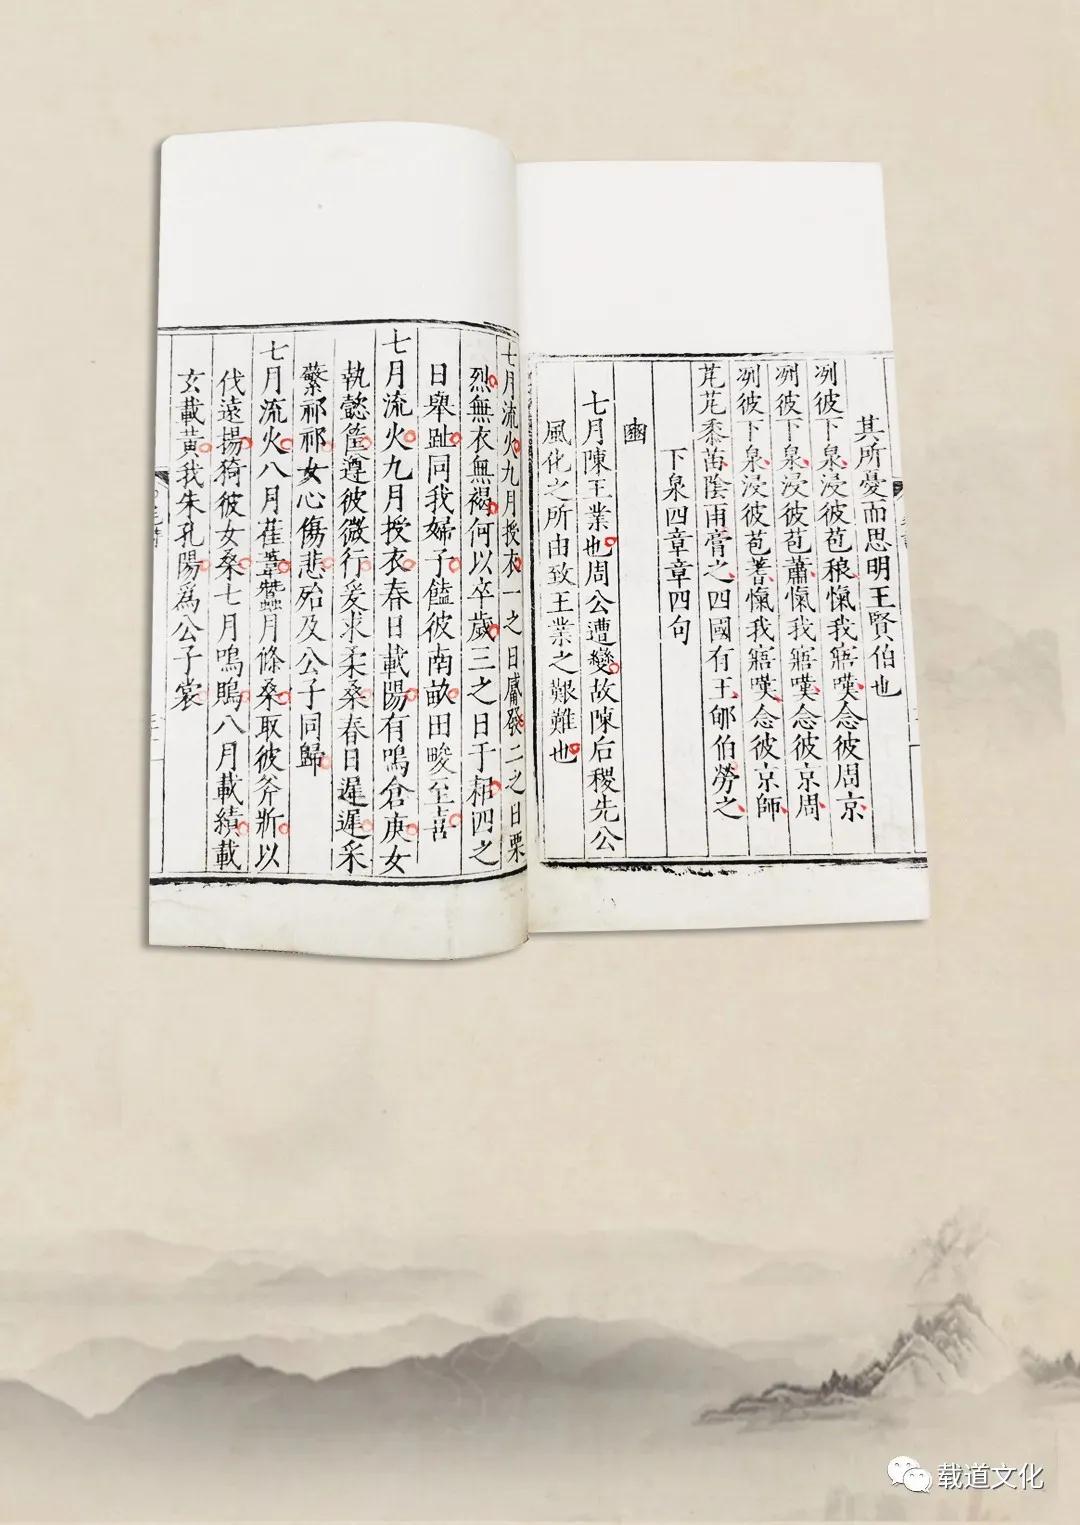 其所憂而思明王賢伯也
冽彼下泉浸彼苞稂愾我寤嘆念彼周京
冽彼下泉浸彼苞蕭愾我寤嘆念彼京周
冽彼下泉浸彼苞蓍愾我寤嘆念彼京師
芃芃黍苗陰雨膏之四國有王郇伯勞之
下泉四章章四句
豳
七月陳王業也周公遭變故陳后稷先公
風化之所由致王業之艱難也
七月流火九月授衣一之日觱發二之日栗
烈無衣無褐何以卒歲三之日于耜四之
日舉趾同我婦子饁彼南畝田畯至喜
七月流火九月授衣春日載陽有鳴倉庚女
執懿筐遵彼微行爰求柔桑春日遲遲采
蘩祁祁女心傷悲殆及公子同歸
七月流火八月萑葦蠶月條桑取彼斧斨以
伐遠揚猗彼女桑七月鳴鵙八月載績載
玄載黃我朱孔陽為公子裳
载道文化